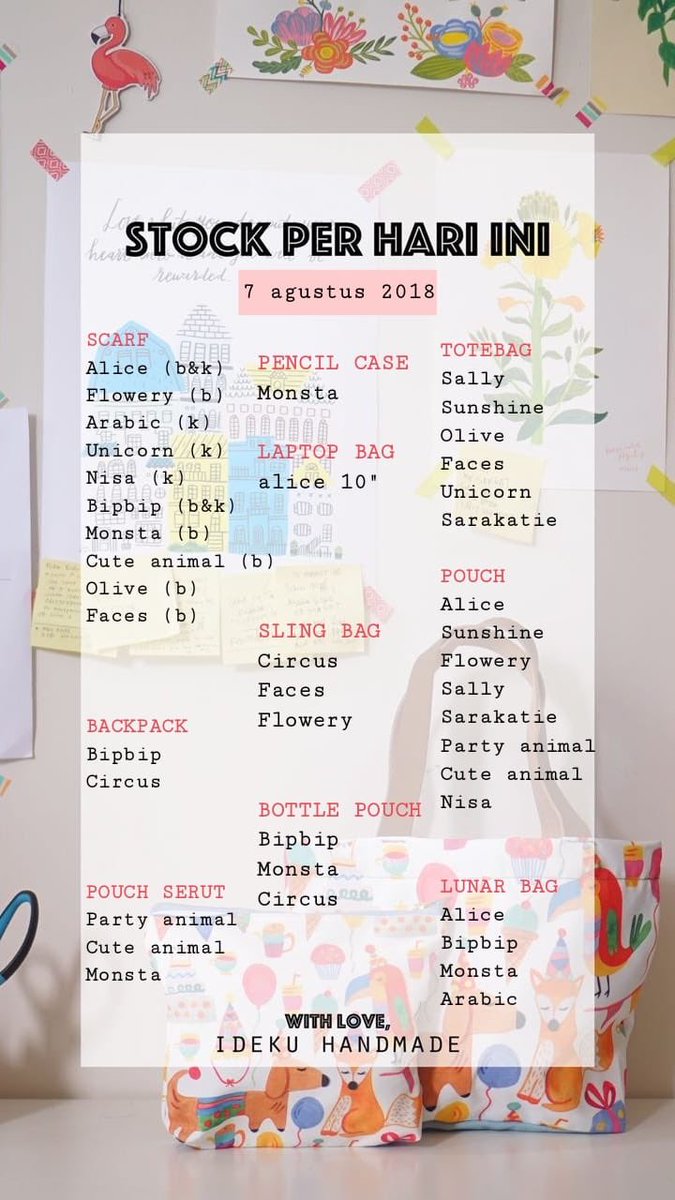 STOCK PER HARI INI
7 agustus 2018
SCARF
Alice (b&k)
Flowery (b)
Arabic (k)
Unicorn (k)
Nisa (k)
Bipbip (b&k)
Monsta (b)
Cute animal (b)
Olive (b)
Faces (b)
BACKPACK
Bipbip
Circus
POUCH SERUT
Party animal
Cute animal
Monsta
PENCIL CASE
Monsta
LAPTOP BAG
alice 10"
SLING BAG
Circus
Faces
Flowery
BOTTLE POUCH
Bipbip
Monsta
Circus
TOTEBAG
Sally
Sunshine
Olive
Faces
Unicorn
Sarakatie
POUCH
Alice
Sunshine
Flowery
Sally
Sarakatie
Party animal
Cute animal
Nisa
LUNAR BAG
Alice
Bipbip
Monsta
Arabic
WITH LOVE,
IDEKU HANDMADE
rewarded.